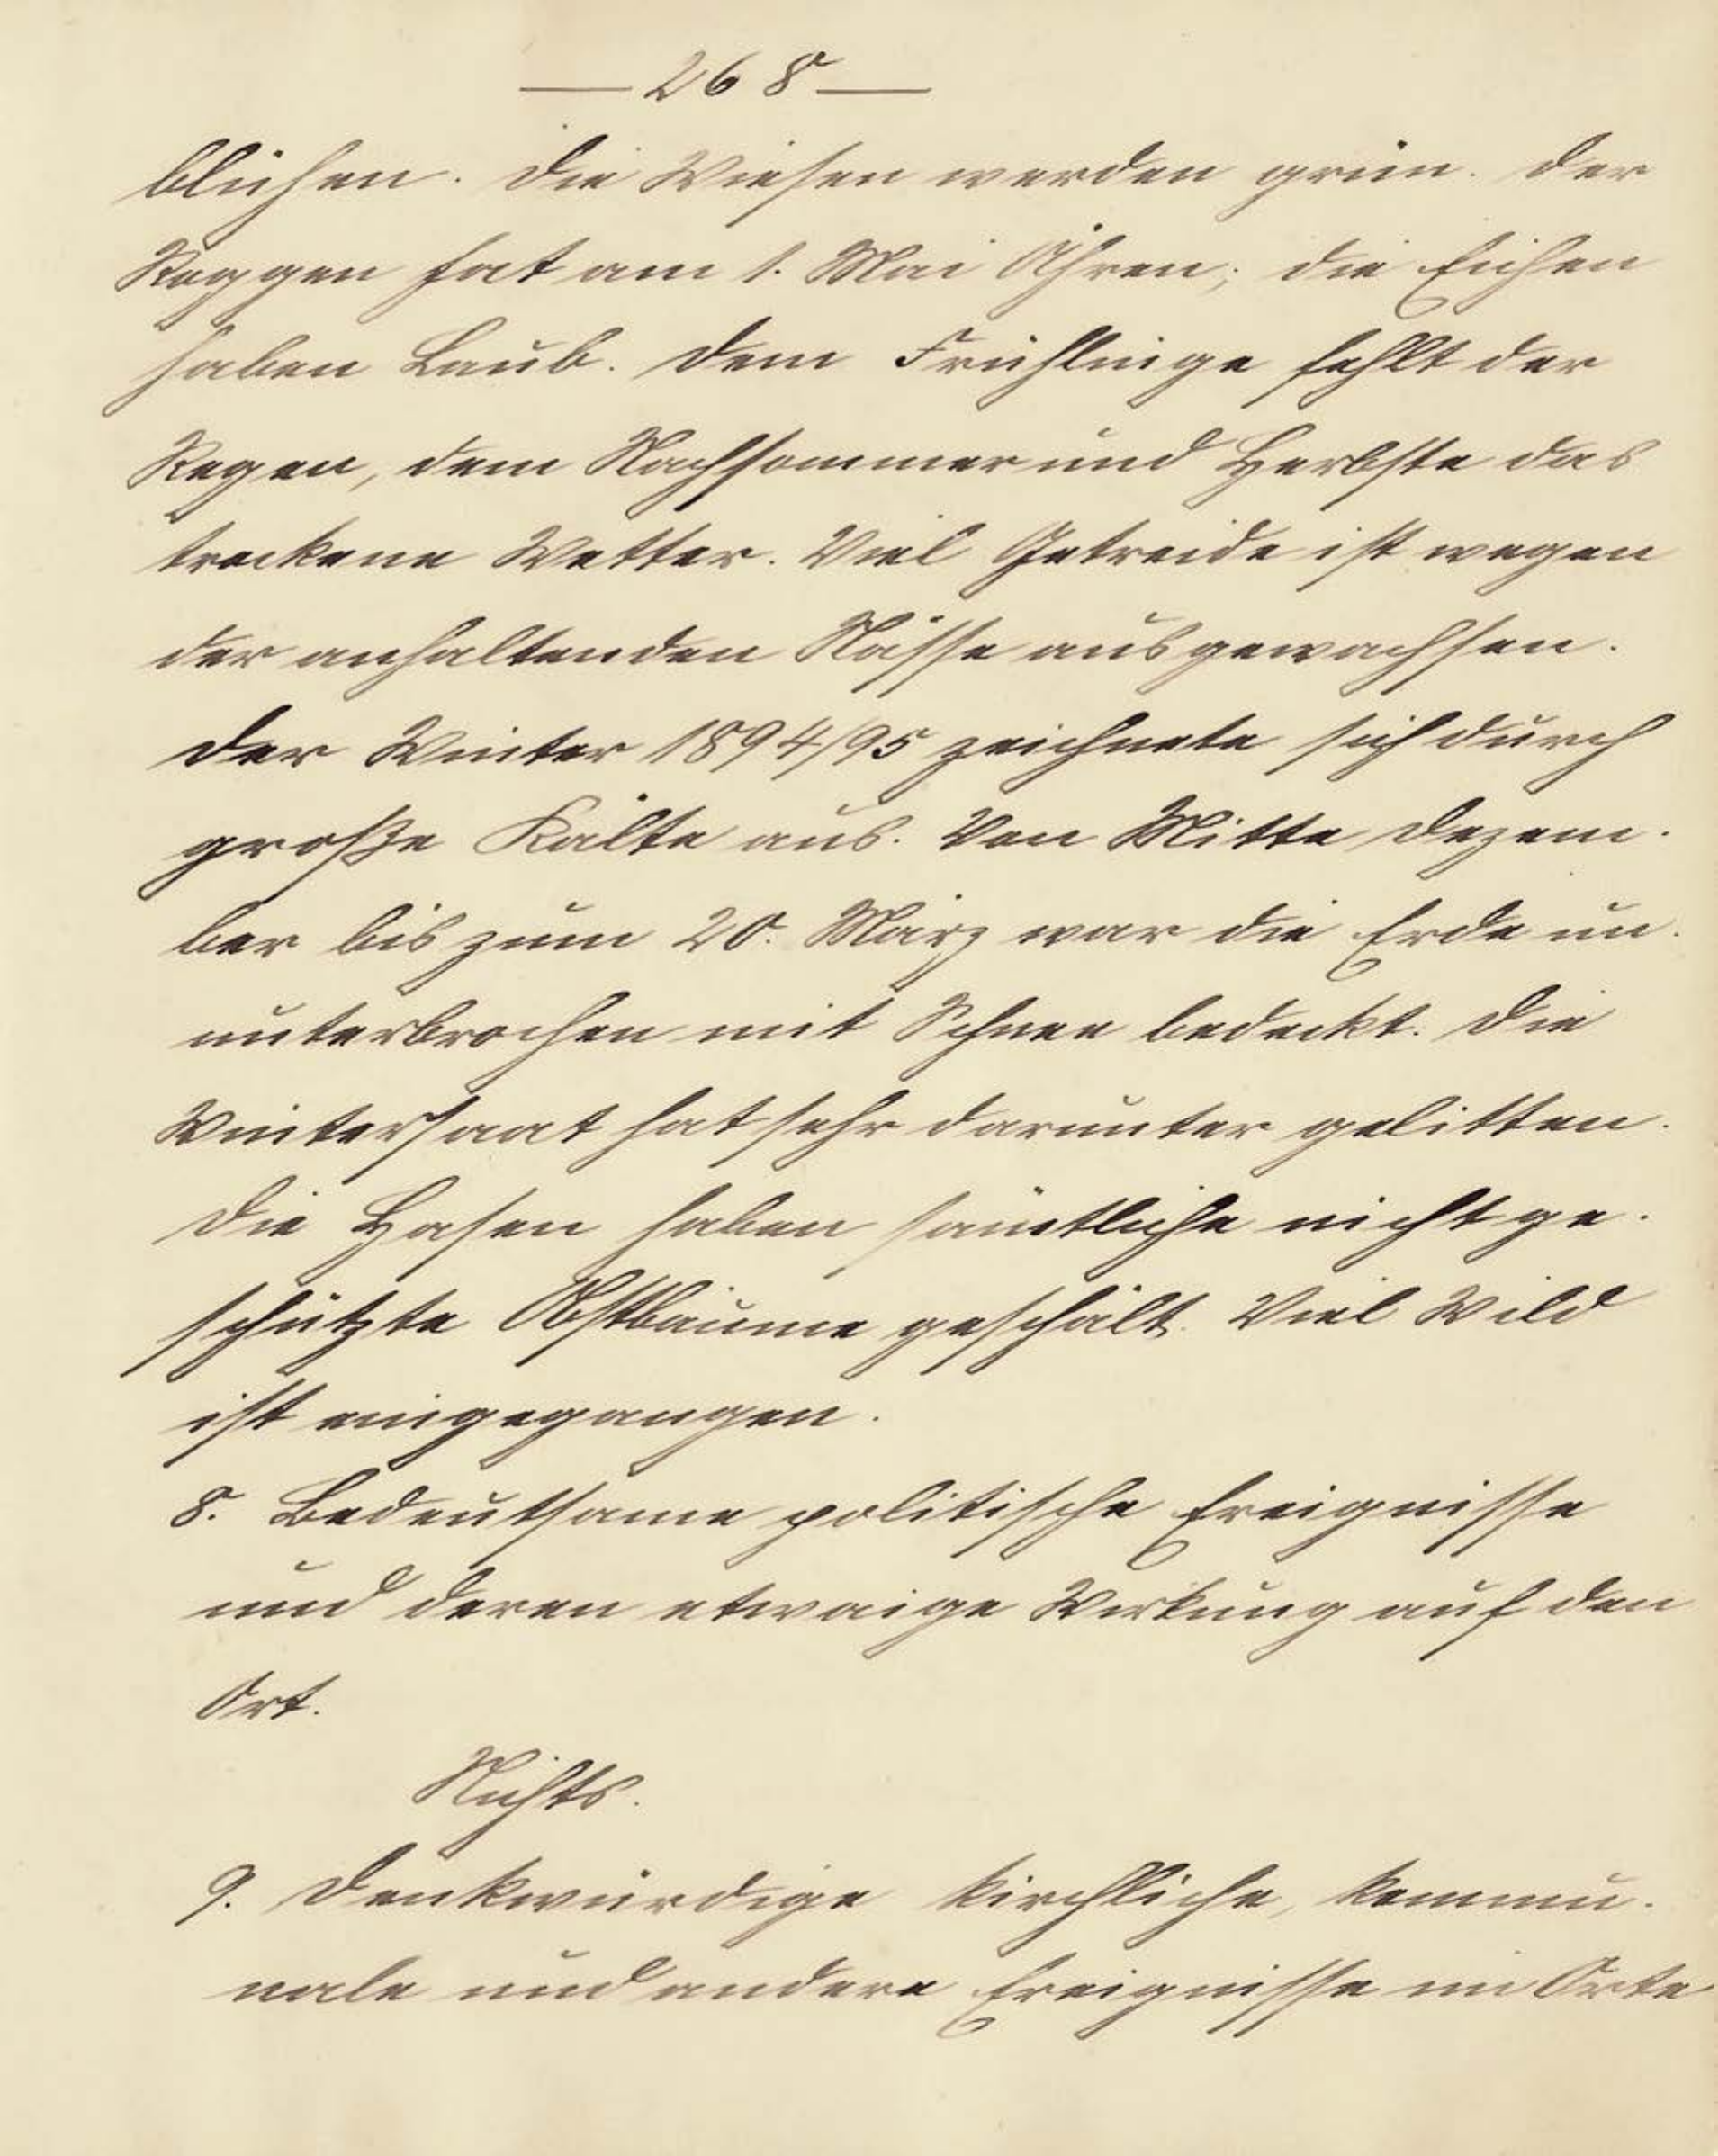 — 268 —
blühen. Die Wiesen werden grün. Der
Roggen hat am 1. Mai Ähren; die Eichen
haben Laub. Dem Frühlinge fehlt der
Regen, dem Nachsommer und Herbste das
trockene Wetter. Viel Getreide ist wegen
der anhaltenden Nässe ausgewachsen.
Der Winter 1894/95 zeichnete sich durch
große Kälte aus. Von Mitte Dezem-
ber bis zum 20. März war die Erde un-
unterbrochen mit Schnee bedeckt. Die
Wintersaat hat sehr darunter gelitten.
Die Hasen haben sämtliche nicht ge-
schützte Obstbäume geschält. Viel Wild
ist eingegangen.
8. Bedeutsame politische Ereignisse
und deren etwaige Wirkung auf den
Ort.
Nichts.
9. Denkwürdige kirchliche, kommu-
nale und andere Ereignisse im Orte